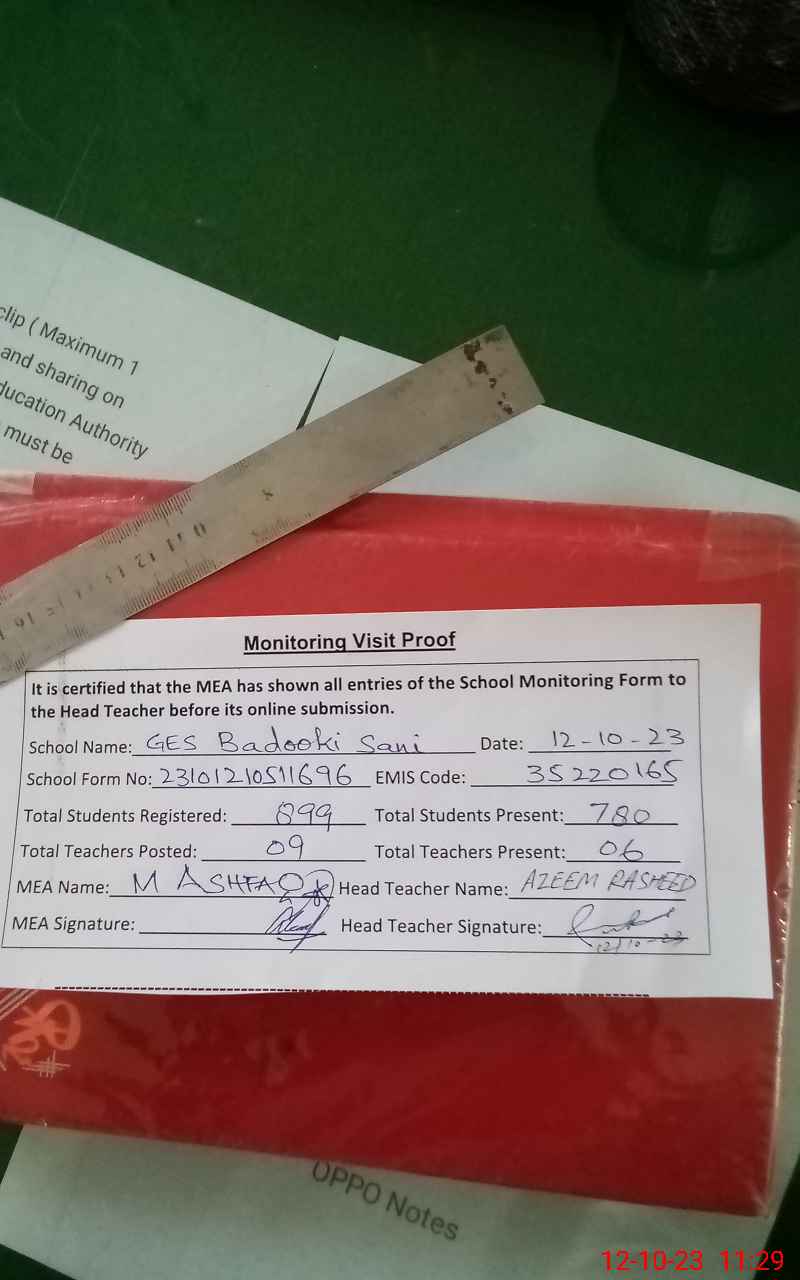 clip ( Maximum 1
and sharing on
ducation Authority
must be
8
Monitoring Visit Proof
It is certified that the MEA has shown all entries of the School Monitoring Form to
the Head Teacher before its online submission.
School Name: GES Badooki Sani Date: 12-10-23
School Form No: 23101210511696 EMIS Code: 35220165
Total Students Registered: 899 Total Students Present: 780
Total Teachers Posted: 09 Total Teachers Present: 06
MEA Name: M ASHFAQ Head Teacher Name: AZEEM RASHEED
MEA Signature: Head Teacher Signature:
12/10-23
OPPO Notes
12-10-23 11:29